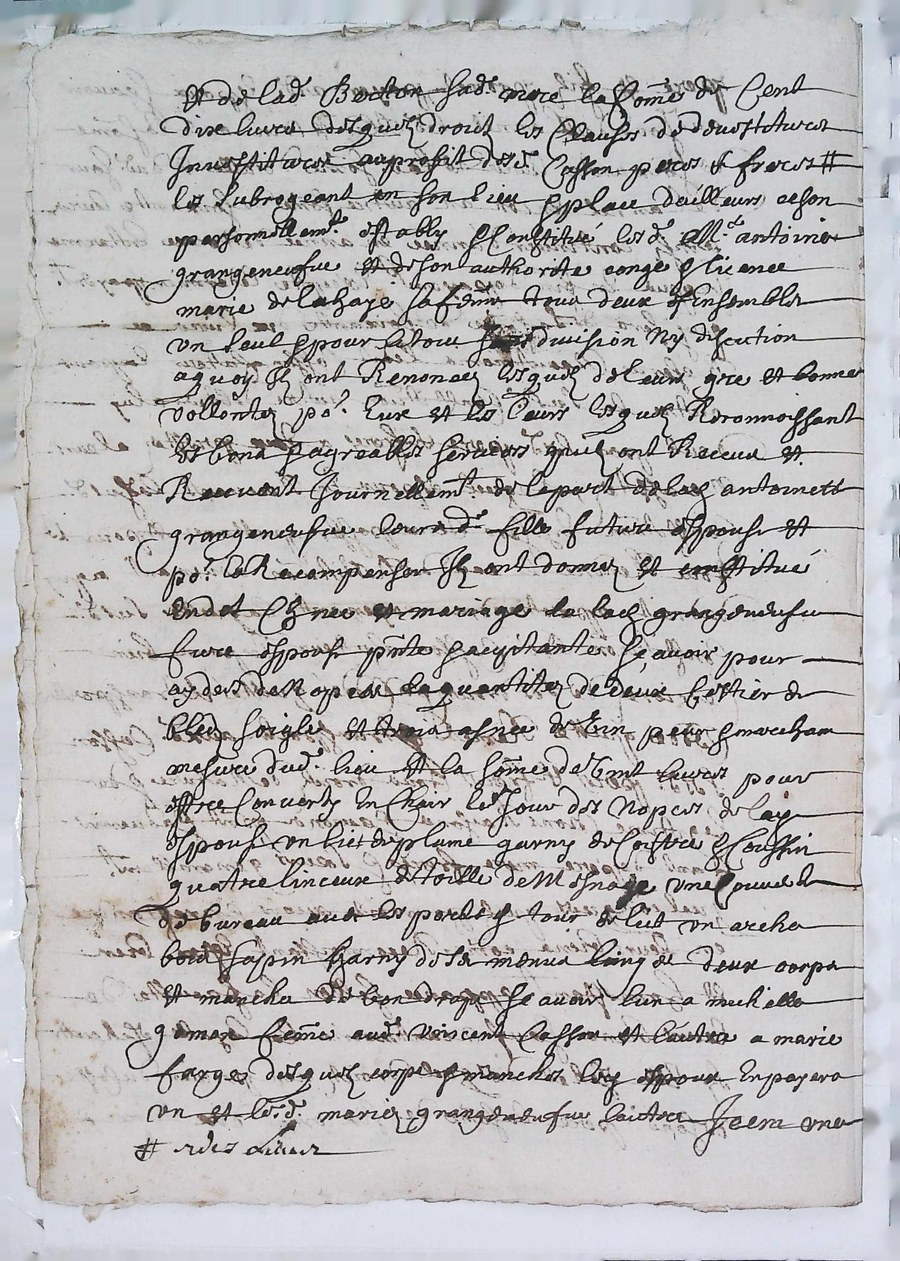 Et de lad. Berton sad. mere la So͠me de Cent
dix livres desquelz droitz les Clauses de devestitures
Investitures au profit desd. Casson peres & freres #
les subrogeant en son lieu & place d'ailleurs ce son
personnellemt. establÿ & Constitué lesd. Me. antoine
grangeneufve et de son authorité congé & licence
marie delahaye sa fem͠e tous deux Ensembles
un seul & pour le tout sans division Ny discution
a quoy Ilz ont Renoncez lesquelz de leurs gre et bonnes
vollontez po. Eux et les leurs lesquelz Reconnoissant
les bons & agreables services quilz ont Receus et
Recoivent Journellemt. de la part de lad antoinett
grangeneufve leurs d. fille future espouse et
po. la Recompenser Ilz ont donnez et constitué
En dot Ch nce et mariage a la lad grangeneufve
fuure espouse pnte & aceptante scavoir pour
aydes de Nopces la quantitez de deux sestier de
bled soigle et trois asnee de Vin peur & marcham
mesure dud. lieu et la so͠me de Vint livres pour
estre Converty En Chair le Jour des Nopces de lad
espouse un lict de plume garny de Coistre & Coussin
quatre linceux de toille de Mesnage une Couverte
de bureau avec les pactes & tour de lict un arche
bois sapin garny de ses menus linge deux corps
et manche de bon drapt scavoir lun a michelle
gomon fem͠e aud. vincent Casson et lautre a marie
farges desquelz corps & manches led espoux En payera
un et lesd. mariez grangeneufve lautre Item une
#